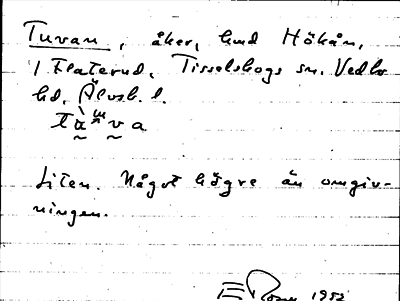 Tuvan, åker, hmd Hökån,
1 Flaterud, Tisselskogs sn. Vedbo
hd, Älvsb. l.
Liten. Något högre än omgiv-
ningen.
1952